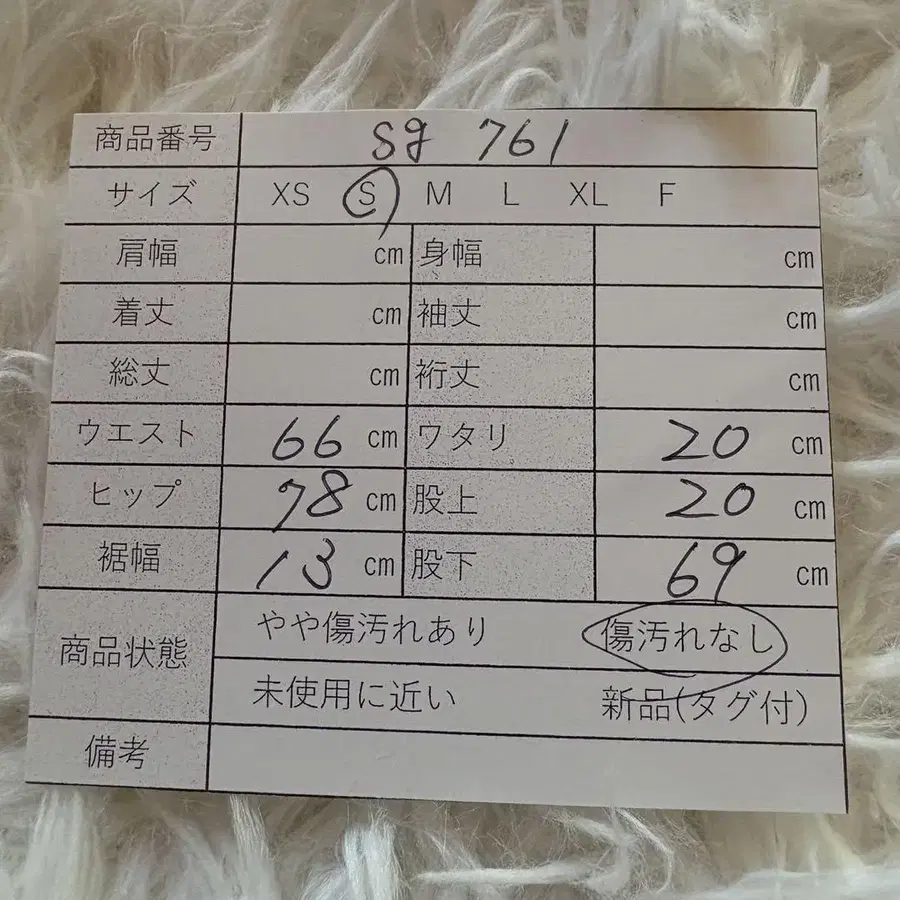 商品番号 sg 761
サイズ XS S M L XL F
肩幅 cm 身幅 cm
着丈 cm 袖丈 cm
総丈 cm 裄丈 cm
ウエスト 66 cm ワタリ 20 cm
ヒップ 78 cm 股上 20 cm
裾幅 13 cm 股下 69 cm
商品状態 やや傷汚れあり 傷汚れなし
未使用に近い 新品(タグ付)
備考